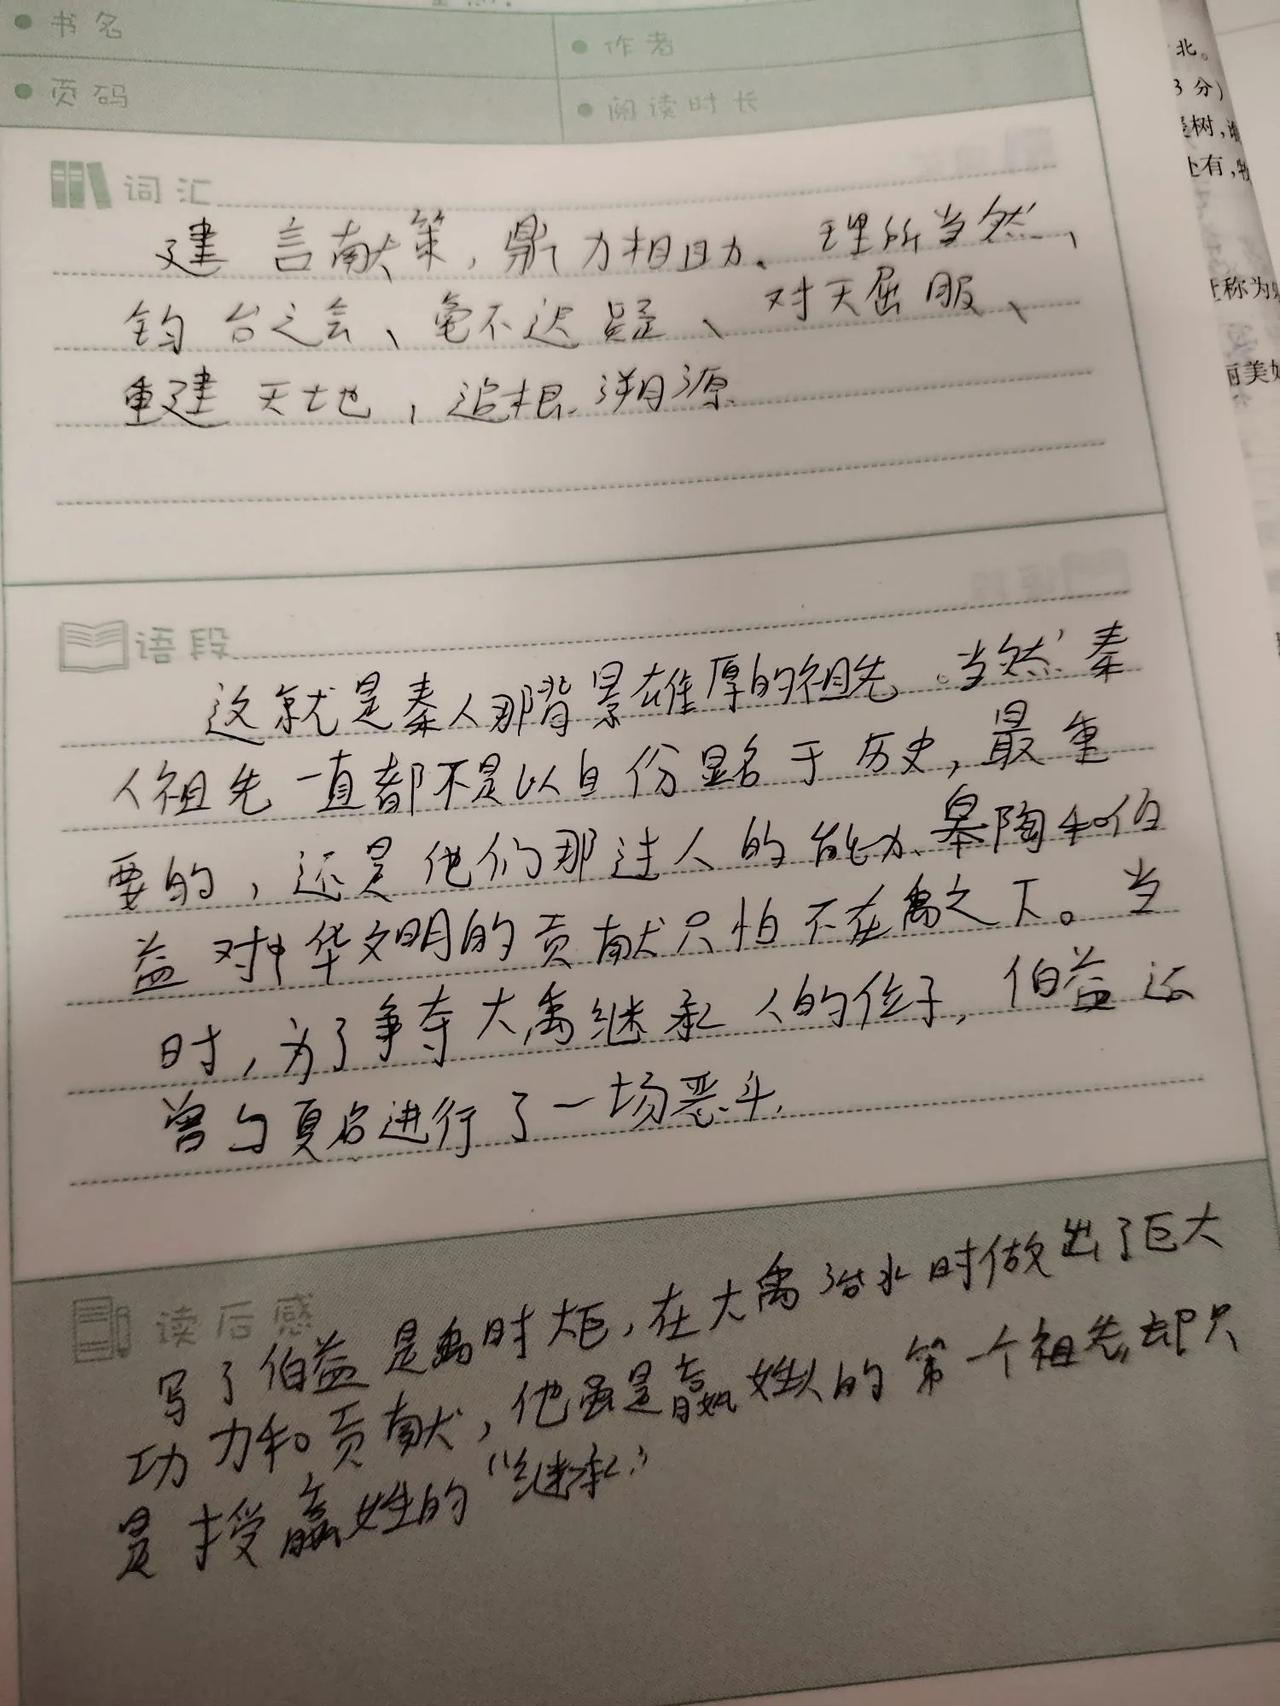 书名
作者
页码
阅读时长
词汇
建言献策，鼎力相助、理所当然、
钧台之会、毫不迟疑、对天屈服、
重建天地，追根溯源
语段
这就是秦人那背景雄厚的祖先。当然，秦
人祖先一直都不是以身份显名于历史，最重
要的，还是他们那过人的能力、皋陶和伯
益对中华文明的贡献只怕不在禹之下。当
时，为了争夺大禹继承人的位子，伯益还
曾与夏启进行了一场恶斗.
读后感
写了伯益是禹时大臣，在大禹治水时做出了巨大
功力和贡献，他虽是嬴姓人的第一个祖先，却只
是授嬴姓的“继承”
北。
3 分）
树，
有，
称为
丽美